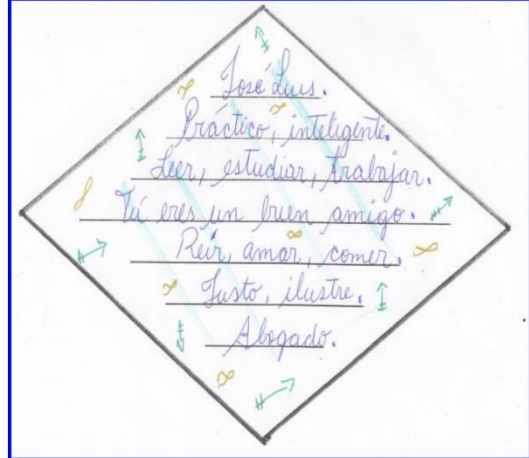 José Luis.
Práctico, inteligente.
Leer, estudiar, trabajar.
Tú eres un buen amigo.
Reír, amar, comer.
Justo, ilustre.
Abogado.